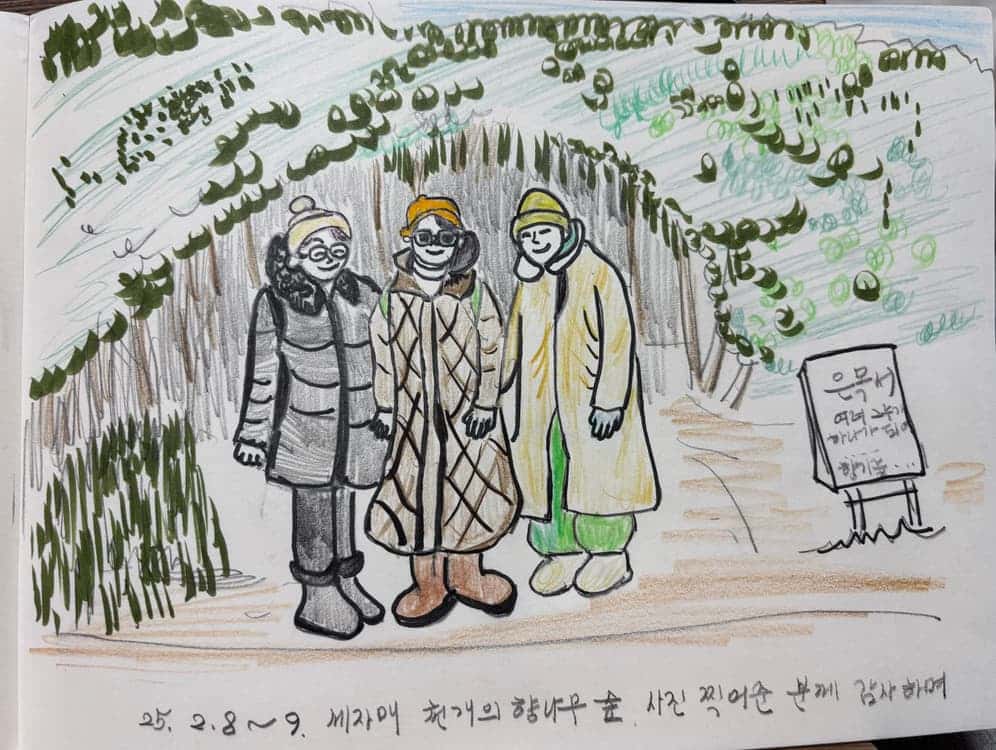 은목서
여러 그루가
하나가 되어
향기숲...
25. 2. 8~9. 세자매 천개의 향나무 숲. 사진 찍어준 분께 감사하며